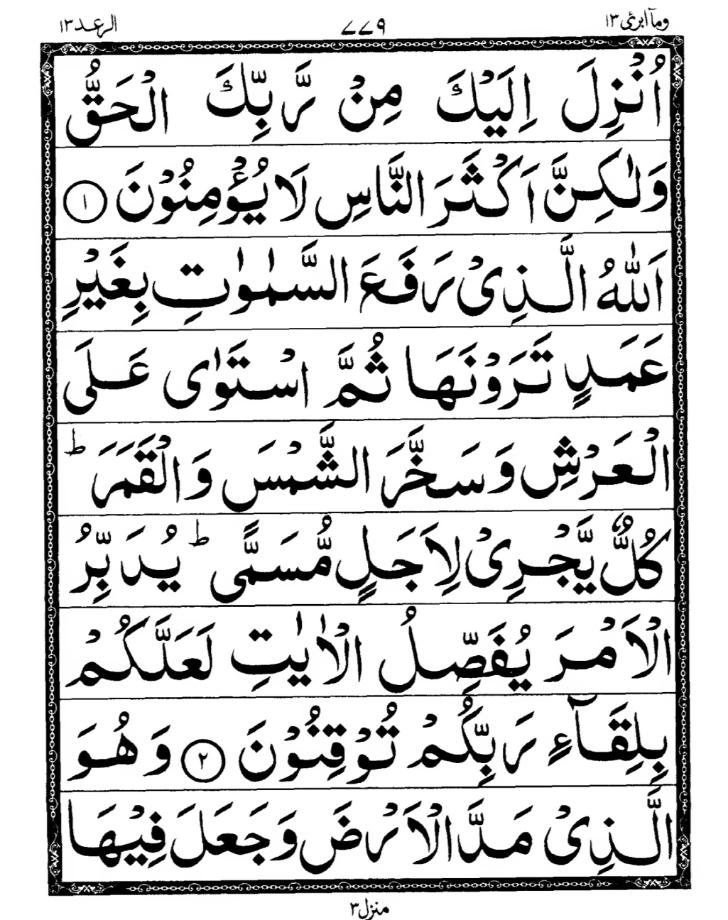 ومآ ابرئ ١٣ ٧٧٩ الرعد ١٣
اُنْزِلَ اِلَيْكَ مِنْ رَّبِّكَ الْحَقُّ
وَلٰكِنَّ اَكْثَرَ النَّاسِ لَا يُؤْمِنُوْنَ ۝١
اَللّٰهُ الَّذِىْ رَفَعَ السَّمٰوٰتِ بِغَيْرِ
عَمَدٍ تَرَوْنَهَا ثُمَّ اسْتَوٰى عَلَى
الْعَرْشِ وَسَخَّرَ الشَّمْسَ وَالْقَمَرَ ؕ
كُلٌّ يَّجْرِىْ لِاَجَلٍ مُّسَمًّى ؕ يُدَبِّرُ
الْاَمْرَ يُفَصِّلُ الْاٰيٰتِ لَعَلَّكُمْ
بِلِقَآءِ رَبِّكُمْ تُوْقِنُوْنَ ۝٢ وَهُوَ
الَّذِىْ مَدَّ الْاَرْضَ وَجَعَلَ فِيْهَا
منزل ٣